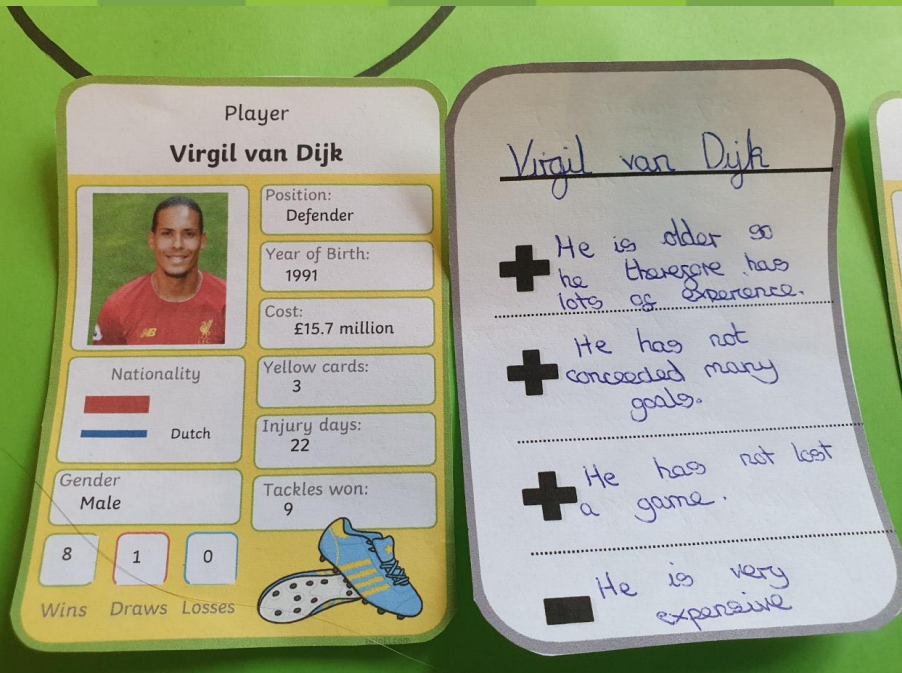 Player
Virgil van Dijk
Position:
Defender
Year of Birth:
1991
Cost:
£15.7 million
Nationality
Dutch
Yellow cards:
3
Injury days:
22
Gender
Male
Tackles won:
9
8
1
0
Wins Draws Losses
NB
Virgil van Dijk
He is older so
he therefore has
lots of experence.
He has not
conceeded many
goals.
He has not lost
a game.
He is very
expensive